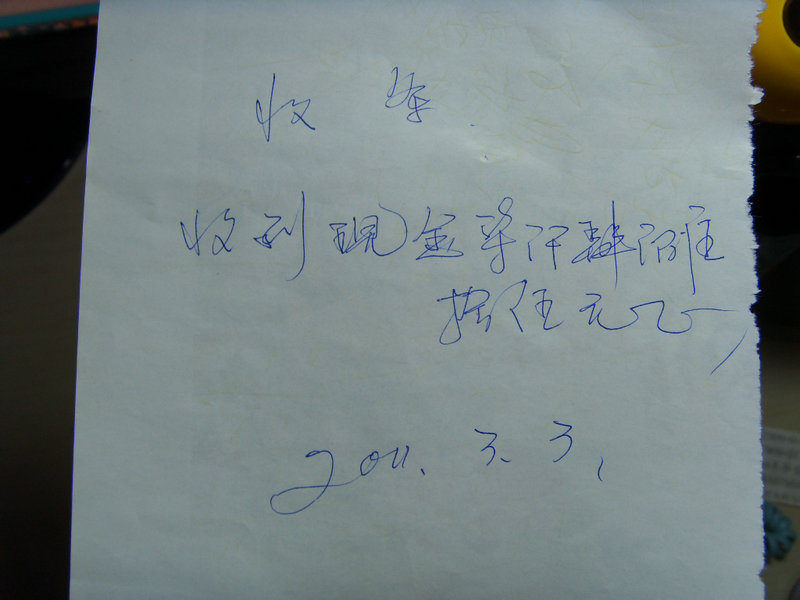 收条
收到现金 仟肆佰
拾伍元正
2011.3.3